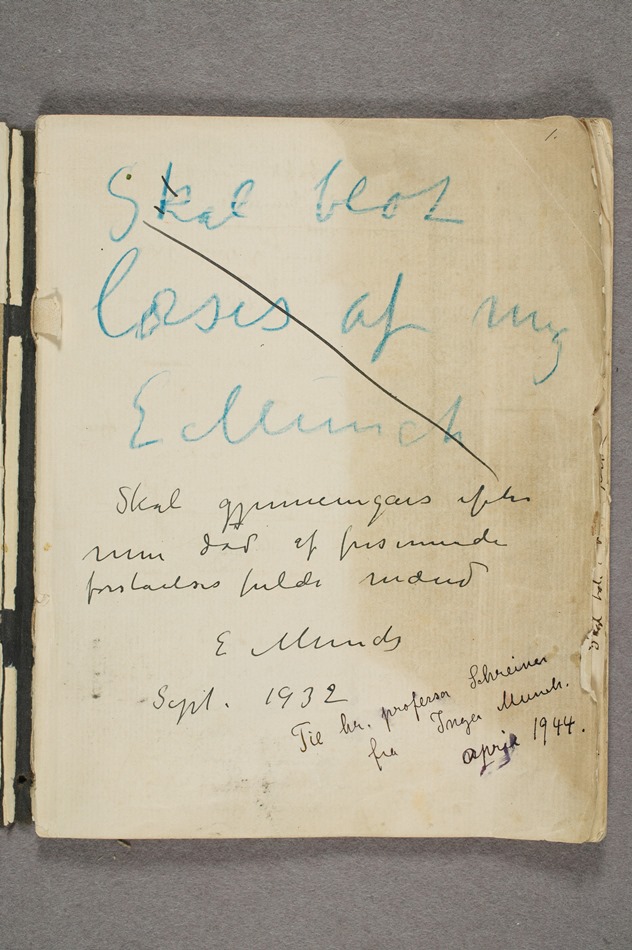 1.
Skal blot
læses af mig
E Munch
Skal gjennemgaaes efter
min död af frisinnede
forstaaelsesfulde mænd
E Munch
Sept. 1932
Til hr. professor Schreiner
fra Inger Munch.
april 1944.